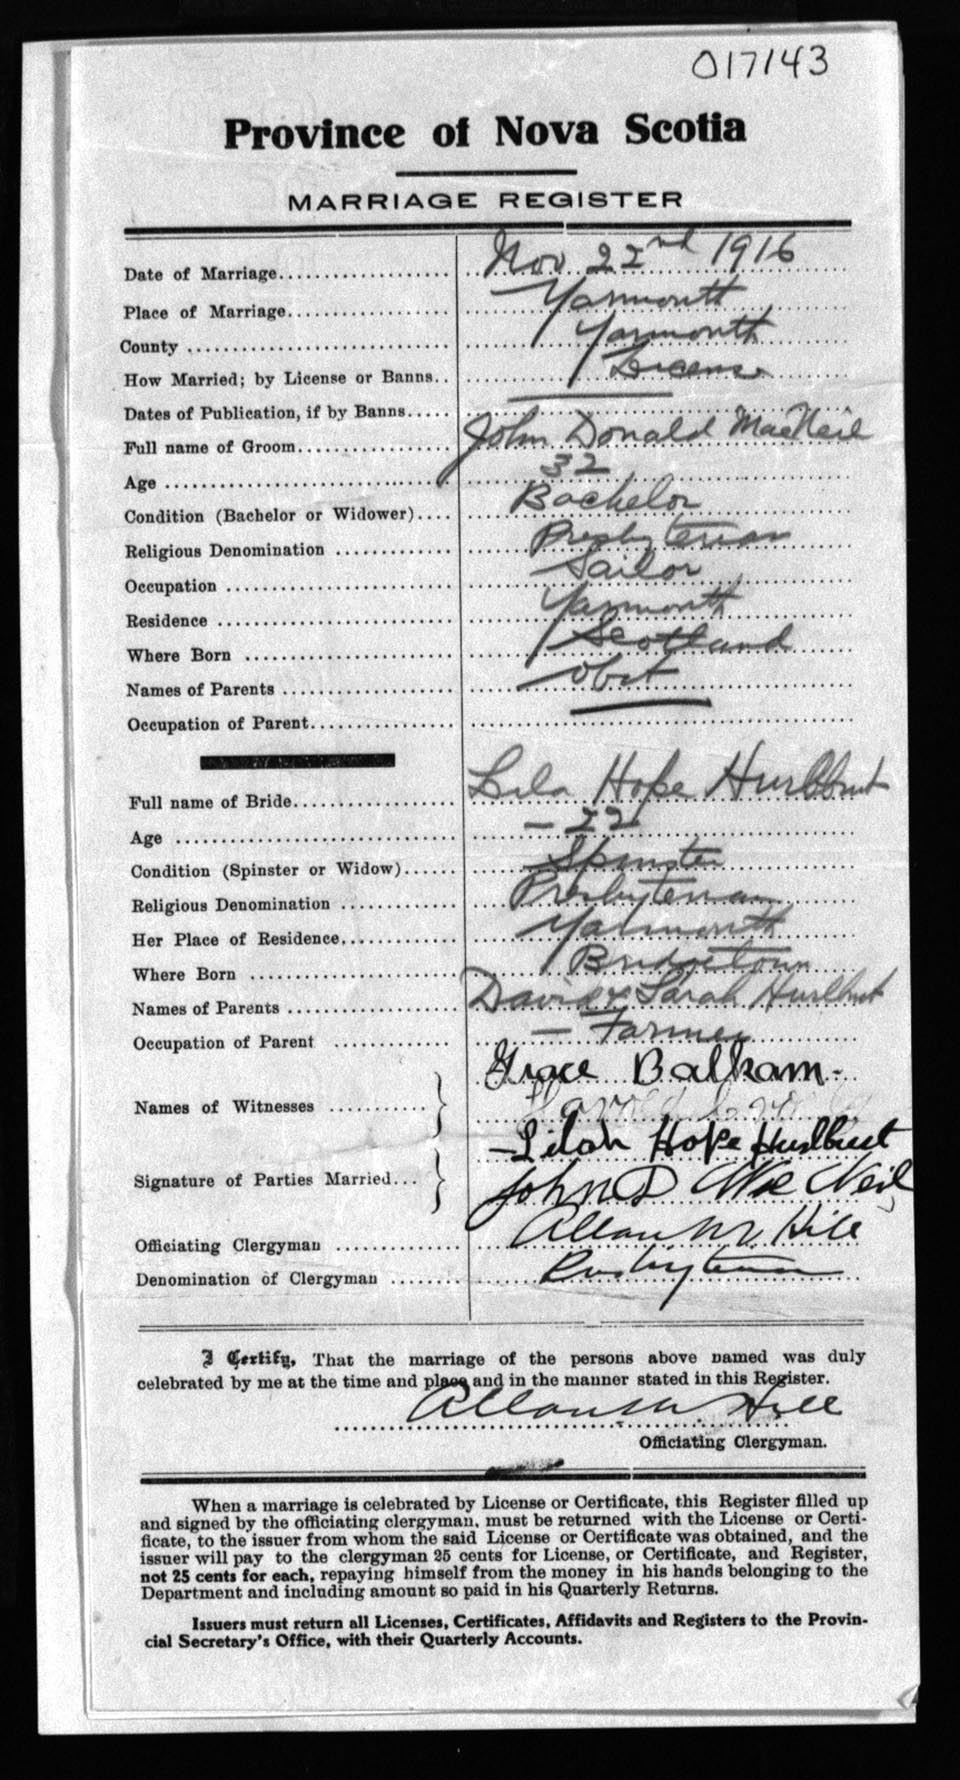 017143
Province of Nova Scotia
MARRIAGE REGISTER
Date of Marriage Nov 22nd 1916
Place of Marriage Yarmouth
County Yarmouth
How Married; by License or Banns License
Dates of Publication, if by Banns
Full name of Groom John Donald MacNeil
Age 32
Condition (Bachelor or Widower) Bachelor
Religious Denomination Presbyterian
Occupation Sailor
Residence Yarmouth
Where Born Scotland
Names of Parents
Occupation of Parent
Full name of Bride Lila Hope Hurlburt
Age - 22
Condition (Spinster or Widow) Spinster
Religious Denomination Presbyterian
Her Place of Residence Yarmouth
Where Born Bridgetown
Names of Parents David & Sarah Hurlburt
Occupation of Parent - Farmer
Grace Balkam -
Names of Witnesses Harold
- Lilah Hope Hurlburt
Signature of Parties Married John D MacNeil
Officiating Clergyman Allan M. Hill
Denomination of Clergyman Presbyterian
I Certify, That the marriage of the persons above named was duly
celebrated by me at the time and place and in the manner stated in this Register.
Allan M Hill
Officiating Clergyman.
When a marriage is celebrated by License or Certificate, this Register filled up
and signed by the officiating clergyman, must be returned with the License or Certi-
ficate, to the issuer from whom the said License or Certificate was obtained, and the
issuer will pay to the clergyman 25 cents for License, or Certificate, and Register,
not 25 cents for each, repaying himself from the money in his hands belonging to the
Department and including amount so paid in his Quarterly Returns.
Issuers must return all Licenses, Certificates, Affidavits and Registers to the Provin-
cial Secretary's Office, with their Quarterly Accounts.